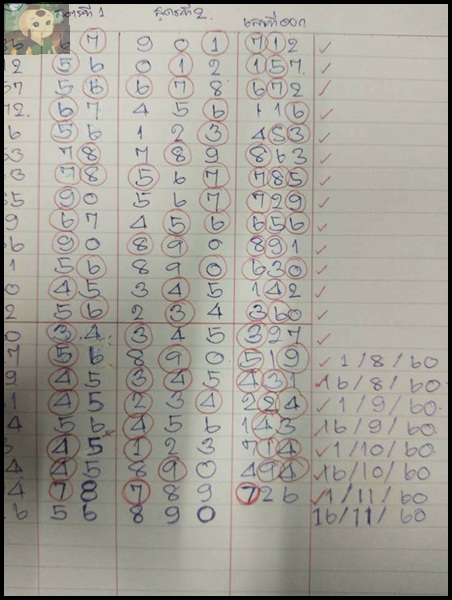 สูตรที่ 1 สูตรที่ 2. เลขที่ออก
36 67 901 712 ✓
12 56 012 157. ✓
57 56 678 672 ✓
72. 67 456 116 ✓
6 56 123 483 ✓
63 78 789 863 ✓
3 78 567 785 ✓
5 90 567 729 ✓
9 67 456 656 ✓
6 90 890 891 ✓
1 56 890 630 ✓
0 45 345 142 ✓
2 56 234 360 ✓
0 34 345 327 ✓
7 56 890 519 ✓ 1/8/60
9 45 345 431 ✓ 16/8/60
1 45 234 224 ✓ 1/9/60
4 56 456 143 ✓ 16/9/60
45 123 714 ✓ 1/10/60
4 45 890 494 ✓ 16/10/60
4 78 789 726 ✓ 1/11/60
6 56 890 16/11/60